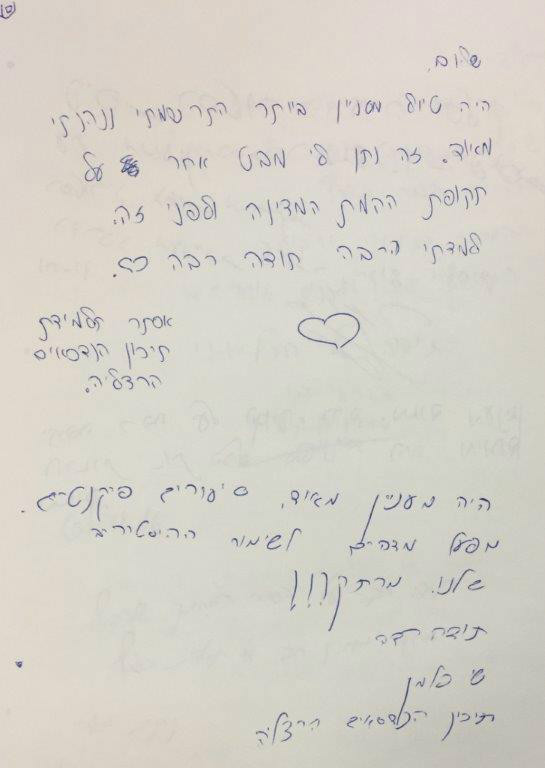 שלום.
היה טיול מעניין ביותר התרשמתי ונהנתי
מאוד. זה נתן לי מבט אחר על
תקופת הקמת המדינה ולפני זה.
למדתי הרבה תודה רבה לכם.
אסתר תלמידת
תיכון הנדסאים
הרצליה.
היה מעניין מאוד. סיפורים פיקנטיים.
מפעל מדהים לשימור ההיסטוריה
שלנו. מרתק!!!
תודה רבה
תיכון הנדסאים הרצליה